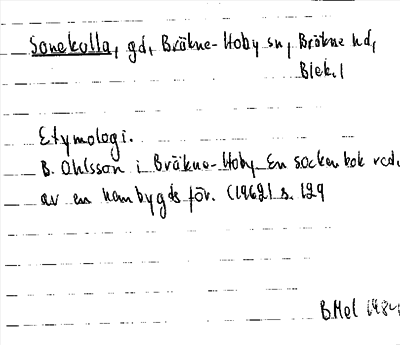 Sonekulla, gd, Bräkne-Hoby sn, Bräkne hd,
Blek.l
Etymologi.
B. Ohlsson i Bräkne-Hoby En socken bok red.
av en hembygdsför. (1962) s. 129
B.Mel